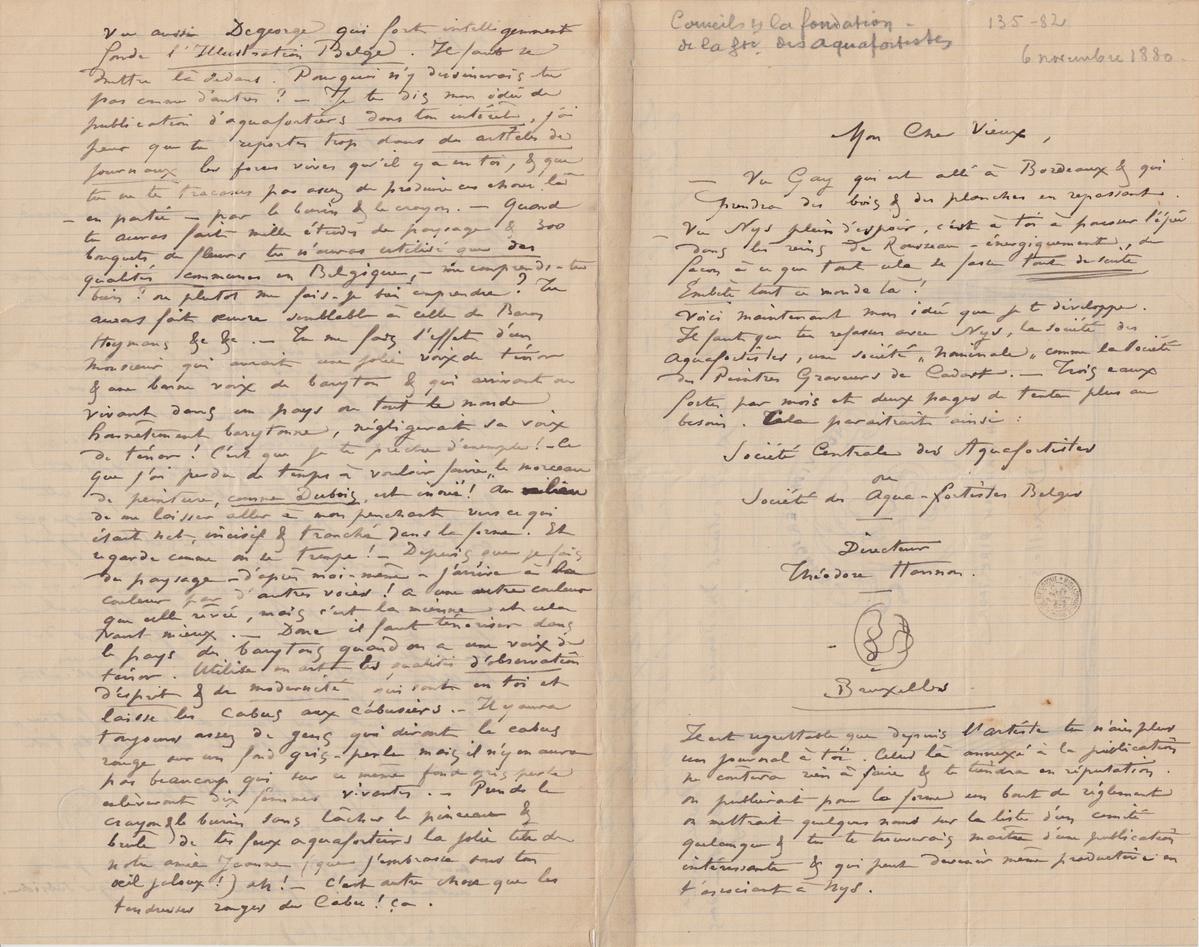 Conseils
de la fondation
de la Sté des aquafortistes
135-82
6 novembre 1880.
Mon Cher Vieux,
— Vu Gay qui est allé à Bordeaux & qui
prendra des bois & des planches en repassant.
— Vu Nys plein d'espoir, c'est à toi à pousser l'épée
dans les reins de Rousseau - énergiquement, de
façon à ce que tout cela se fasse tout de suite
Embête tout ce monde là !
Voici maintenant mon idée que je te développe.
Il faut que tu refasses avec Nys, la société des
Aquafortistes, une société „Nominale„ comme la Société
des Peintres Graveurs de Cadart. — Trois eaux
fortes par mois et deux pages de texte plus au
besoin. Cela paraîtrait ainsi :
Société Centrale des Aquafortistes
ou
Société des Aqua-fortistes Belges
Directeur
Théodore Hannon.
Bruxelles
Il est regrettable que depuis l'artiste tu n'aies plus
un journal à toi. Celui là annexé à la publication
ne coûtera rien à faire & te tiendra en réputation.
on publierait pour la forme un bout de règlement
on mettrait quelques noms sur la liste d'un comité
quelconque & tu te trouverais maître d'une publication
intéressante & qui peut devenir même productive en
t'associant à Nys.
Vu aussi Degeorge qui fort intelligemment
fonde l'Illustration Belge. Il faut se
mettre là dedans. Pourquoi n'y dessinerais tu
pas comme d'autres ? — Je te dis mon idée de
publication d'aquafortistes dans ton intérêt, j'ai
peur que tu reportes trop dans des articles de
journaux les forces vives qu'il y a en toi, & que
tu ne te tracasses pas assez de produire ces choses là
— en partie — par le burin & le crayon. — Quand
tu auras fait mille études de paysage & 300
bouquets de fleurs tu n'auras utilisé que des
qualités communes en Belgique, — me comprends-tu
bien ? ou plutôt me fais-je bien comprendre ? Tu
auras fait œuvre semblable à celle de Baron
Heymans &c &c. — Tu me fais l'effet d'un
Monsieur qui aurait une jolie voix de ténor
& une bonne voix de baryton & qui arrivant ou
vivant dans un pays où tout le monde
honnêtement barytonne, négligerait sa voix
de ténor ! C'est que je te prêche d'exemple ! - Ce
que j'ai perdu de temps à vouloir faire „le morceau
de peinture, comme Dubois, est inouï ! Au milieu
de me laisser aller à mon penchant vers ce qui
était net, incisif & tranché dans la forme. Et
regarde comme on se trompe ! — Depuis que je fais
du paysage - d'après moi-même - j'arrive à la
couleur par d'autres voies ! à une autre couleur
que celle rêvée, mais c'est la mienne et cela
vaut mieux. — Donc il faut ténoriser dans
le pays des barytons quand on a une voix de
ténor. Utilise en art les qualités d'observation
d'esprit & de modernité qui sont en toi et
laisse les cabus aux cabusiers. — Il y aura
toujours assez de gens qui diront le cabus
rouge sur un fond gris-perle mais il n'y en aura
pas beaucoup qui sur ce même fond gris perle
enlèveront dix femmes vivantes. — Prends le
crayon & le burin sans lâcher le pinceau &
brûle de tes feux aquafortiers la jolie tête de
notre amie Jeanne (que j'embrasse sous ton
œil jaloux !) ah ! — c'est autre chose que les
tendresses rouges du Cabus ! ça.